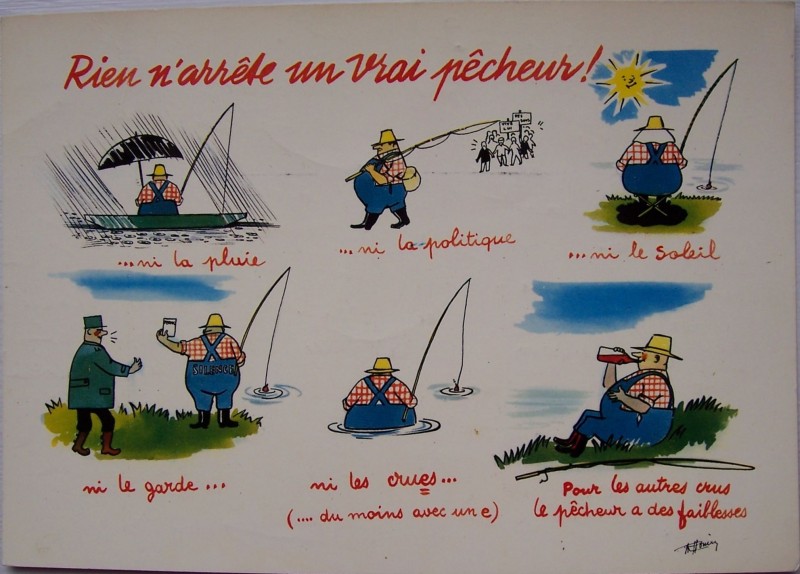 Rien n'arrête un vrai pêcheur!
...ni la pluie
...ni la politique
...ni le soleil
SILENCE
ni le garde...
ni les crues...
(.... du moins avec un e)
Pour les autres crus
le pêcheur a des faiblesses